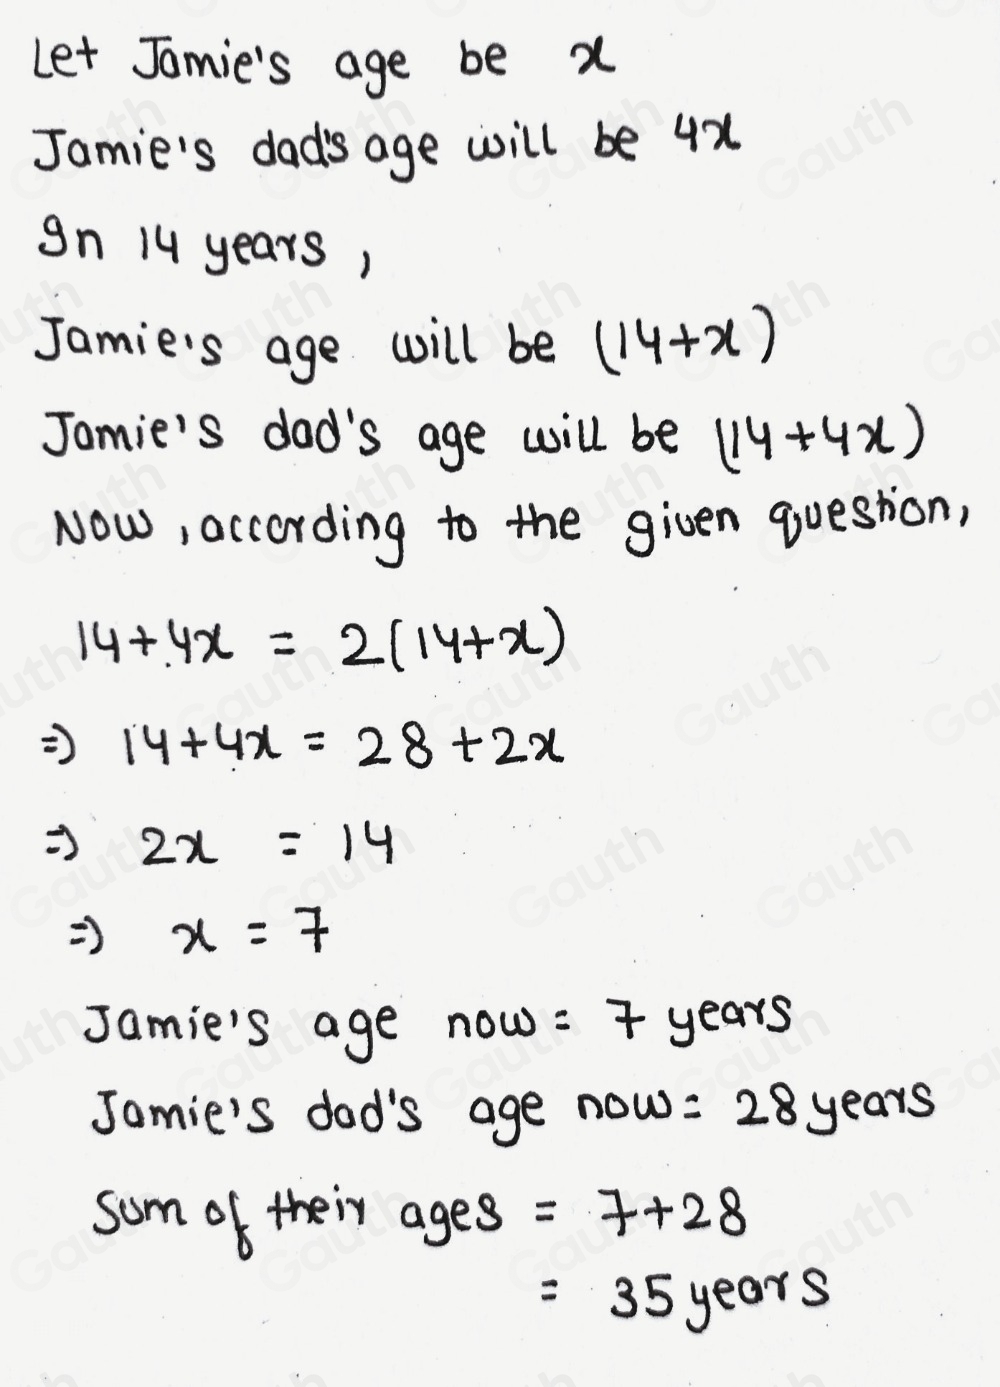 Let Jamie's age be x
Jamie's dad's age will be 4x
In 14 years,
Jamie's age will be (14+x)
Jamie's dad's age will be (14+4x)
Now, according to the given question,
14+4x = 2(14+x)
=) 14+4x = 28+2x
=) 2x = 14
=) x = 7
Jamie's age now = 7 years
Jamie's dad's age now = 28 years
Sum of their ages = 7+28
= 35 years